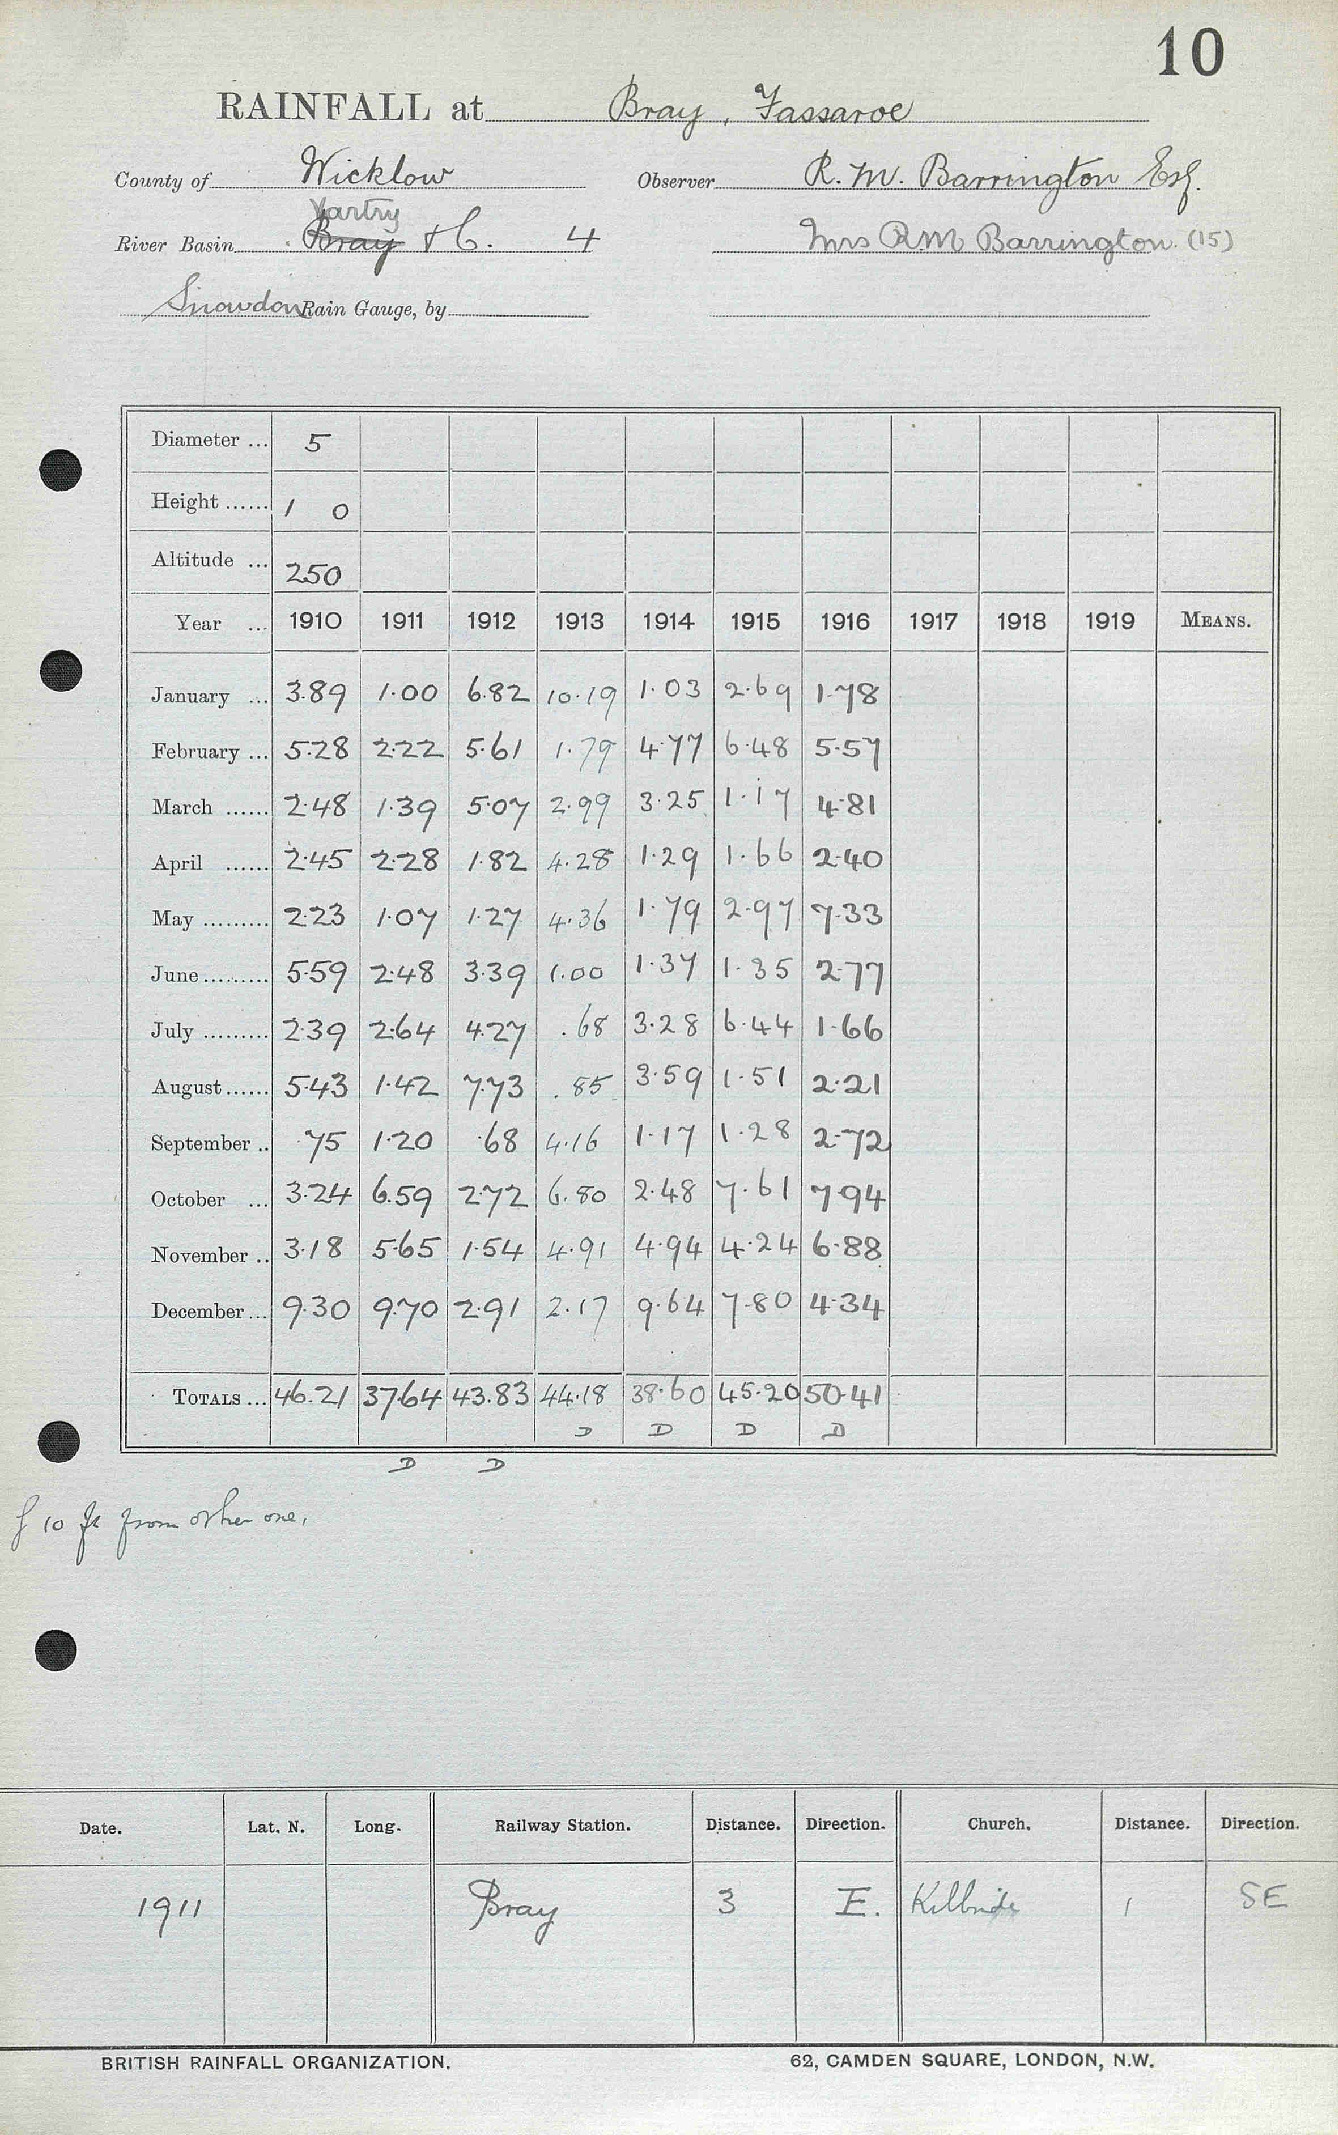 10
RAINFALL at Bray, Fassaroe
County of Wicklow Observer R. M. Barrington Esq.
Vartry
River Basin Bray &C. 4 Mrs RM Barrington (15)
Snowdon Rain Gauge, by
Diameter ... 5
Height ...... 1 0
Altitude ... 250
Year ... 1910 1911 1912 1913 1914 1915 1916 1917 1918 1919 MEANS.
January ... 3.89 1.00 6.82 10.19 1.03 2.69 1.78
February ... 5.28 2.22 5.61 1.79 4.77 6.48 5.57
March ...... 2.48 1.39 5.07 2.99 3.25 1.17 4.81
April ...... 2.45 2.28 1.82 4.28 1.29 1.66 2.40
May ......... 2.23 1.07 1.27 4.36 1.79 2.97 7.33
June ......... 5.59 2.48 3.39 1.00 1.37 1.35 2.77
July ......... 2.39 2.64 4.27 .68 3.28 6.44 1.66
August ...... 5.43 1.42 7.73 .85 3.59 1.51 2.21
September .. .75 1.20 .68 4.16 1.17 1.28 2.72
October ... 3.24 6.59 2.72 6.80 2.48 7.61 7.94
November .. 3.18 5.65 1.54 4.91 4.94 4.24 6.88
December ... 9.30 9.70 2.91 2.17 9.64 7.80 4.34
TOTALS ... 46.21 37.64 43.83 44.18 38.60 45.20 50.41
D D D D
D D
10 ft from other one.
Date. Lat. N. Long. Railway Station. Distance. Direction. Church. Distance. Direction.
1911 Bray 3 E. Kilbride 1 SE
BRITISH RAINFALL ORGANIZATION. 62, CAMDEN SQUARE, LONDON, N.W.